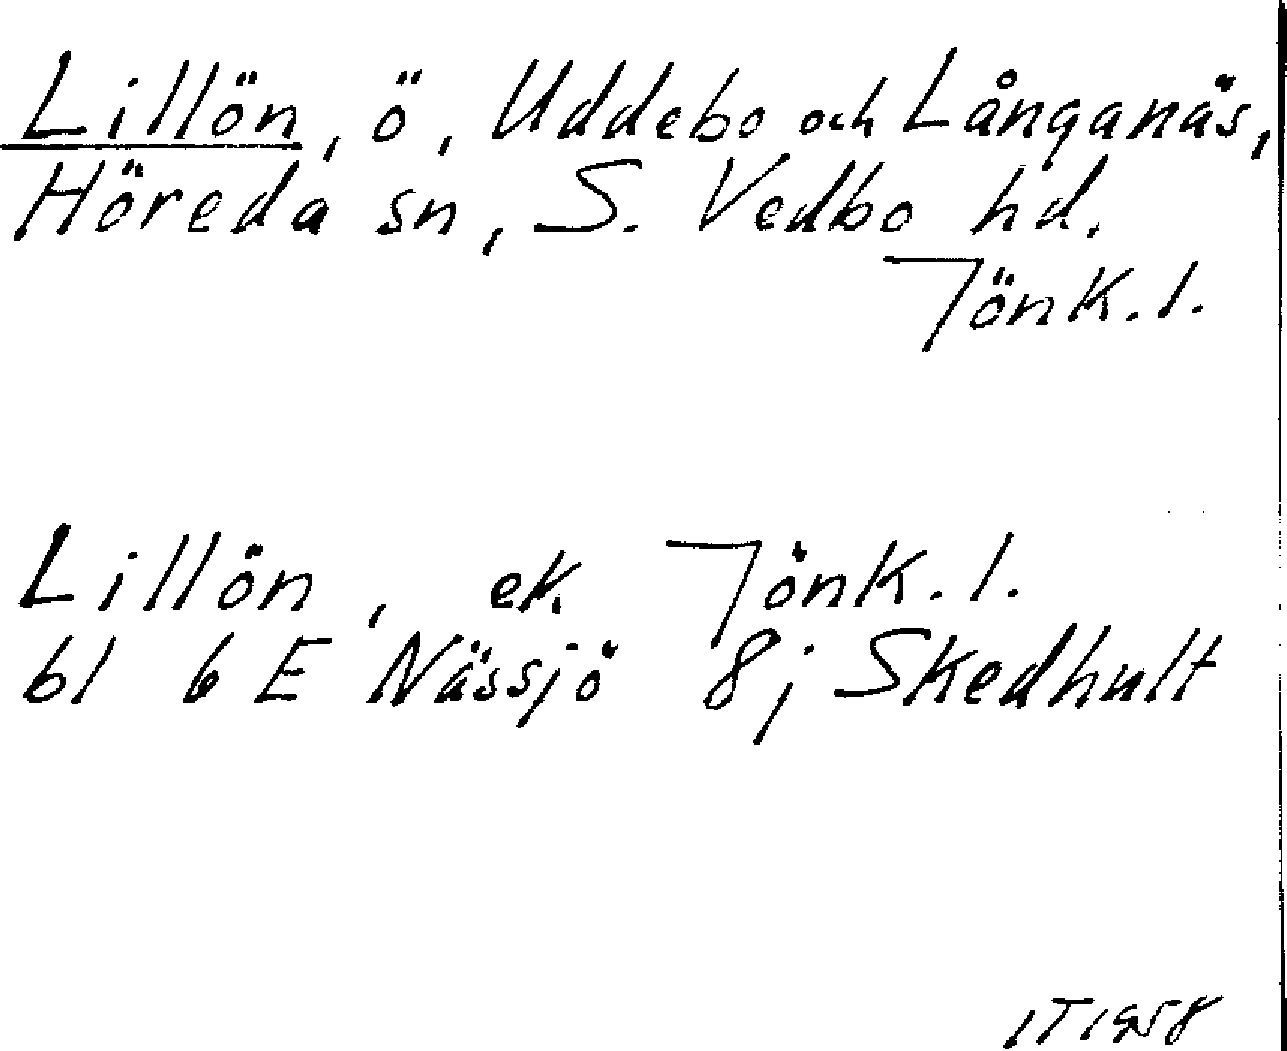 Lillön, ö, Uddebo och Långanäs,
Höreda sn, S. Vedbo hd.
Jönk.l.
Lillön, ek. Jönk.l.
bl 6E Nässjö 8j Skedhult
IT 1958